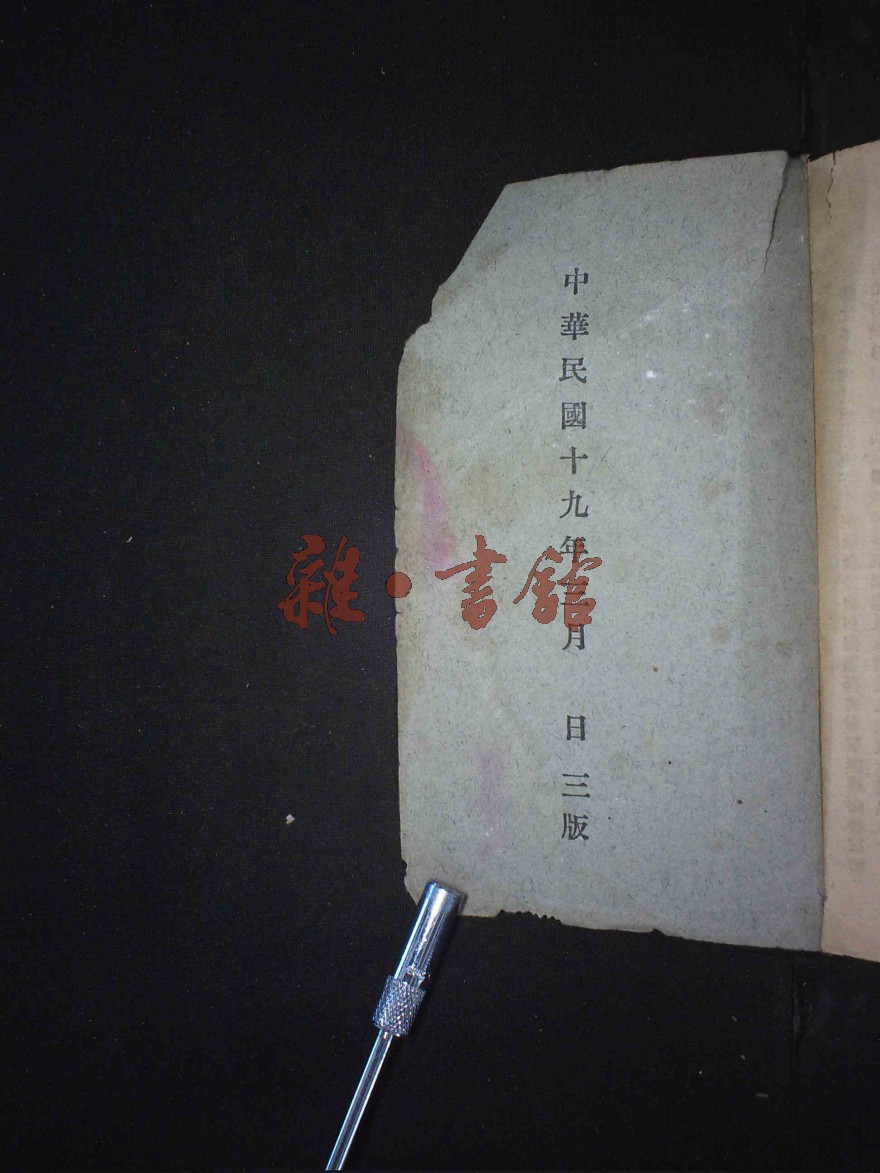 中華民國十九年三月　日三版
雜·書館